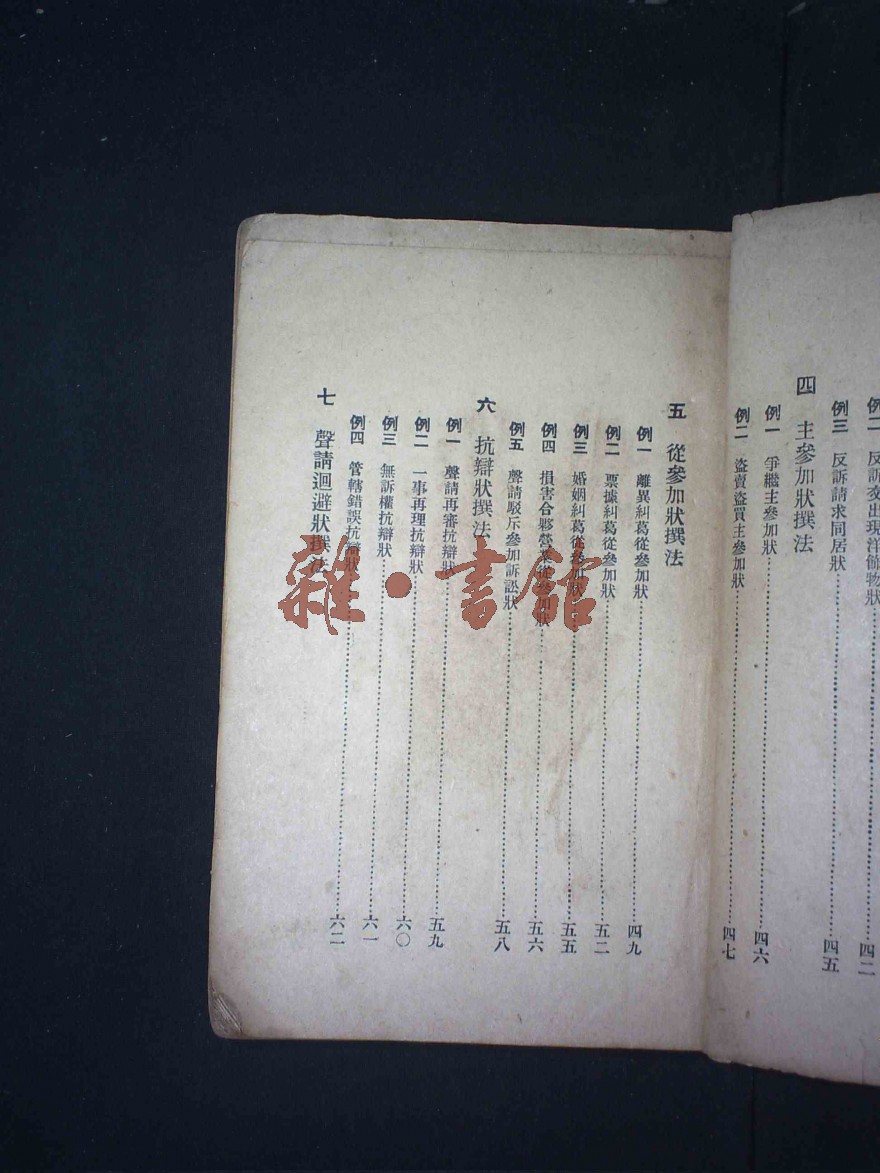 例二 反訴交出現洋飾物狀……四二
例三 反訴請求同居狀……四五
四 主參加狀撰法
例一 爭繼主參加狀……四六
例二 盜賣盜買主參加狀……四七
五 從參加狀撰法
例一 離異糾葛從參加狀……四九
例二 票據糾葛從參加狀……五二
例三 婚姻糾葛從參加狀……五五
例四 損害合夥營業從參加狀……五六
例五 聲請駁斥參加訴訟狀……五八
六 抗辯狀撰法
例一 聲請再審抗辯狀……五九
例二 一事再理抗辯狀……六〇
例三 無訴權抗辯狀……六一
例四 管轄錯誤抗辯狀……六二
七 聲請迴避狀撰法
雜·書館